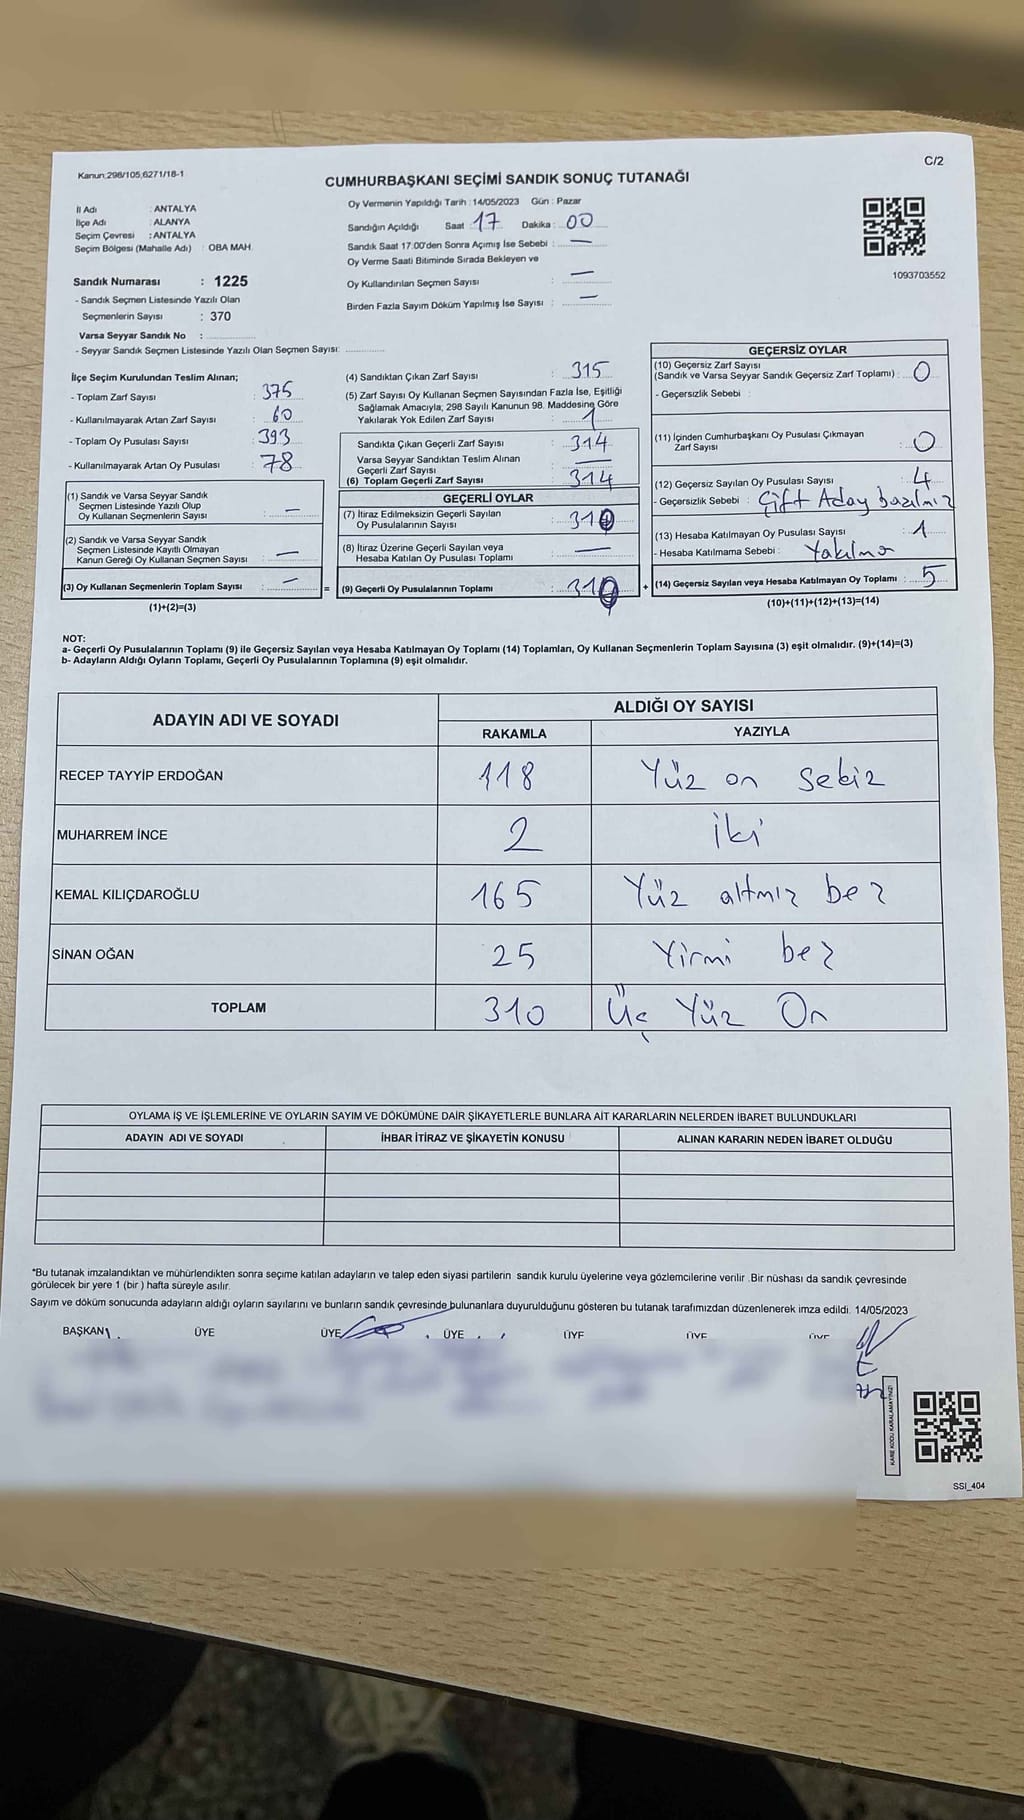 C/2
Kanun:298/105;6271/18-1
CUMHURBAŞKANI SEÇİMİ SANDIK SONUÇ TUTANAĞI
İl Adı : ANTALYA
İlçe Adı : ALANYA
Seçim Çevresi : ANTALYA
Seçim Bölgesi (Mahalle Adı) : OBA MAH.
Sandık Numarası : 1225
- Sandık Seçmen Listesinde Yazılı Olan
Seçmenlerin Sayısı : 370
Varsa Seyyar Sandık No :
- Seyyar Sandık Seçmen Listesinde Yazılı Olan Seçmen Sayısı:
Oy Vermenin Yapıldığı Tarih : 14/05/2023 Gün : Pazar
Sandığın Açıldığı Saat : 17 Dakika : 00
Sandık Saat 17.00'den Sonra Açımış İse Sebebi : —
Oy Verme Saati Bitiminde Sırada Bekleyen ve
Oy Kullandırılan Seçmen Sayısı : —
Birden Fazla Sayım Döküm Yapılmış İse Sayısı : —
1093703552
İlçe Seçim Kurulundan Teslim Alınan;
- Toplam Zarf Sayısı : 375
- Kullanılmayarak Artan Zarf Sayısı : 60
- Toplam Oy Pusulası Sayısı : 393
- Kullanılmayarak Artan Oy Pusulası : 78
(1) Sandık ve Varsa Seyyar Sandık
Seçmen Listesinde Yazılı Olup
Oy Kullanan Seçmenlerin Sayısı : —
(2) Sandık ve Varsa Seyyar Sandık
Seçmen Listesinde Kayıtlı Olmayan
Kanun Gereği Oy Kullanan Seçmen Sayısı : —
(3) Oy Kullanan Seçmenlerin Toplam Sayısı : — =
(1)+(2)=(3)
(4) Sandıktan Çıkan Zarf Sayısı : 315
(5) Zarf Sayısı Oy Kullanan Seçmen Sayısından Fazla İse, Eşitliği
Sağlamak Amacıyla; 298 Sayılı Kanunun 98. Maddesine Göre
Yakılarak Yok Edilen Zarf Sayısı : 1
Sandıkta Çıkan Geçerli Zarf Sayısı : 314
Varsa Seyyar Sandıktan Teslim Alınan
Geçerli Zarf Sayısı : —
(6) Toplam Geçerli Zarf Sayısı : 314
GEÇERLİ OYLAR
(7) İtiraz Edilmeksizin Geçerli Sayılan
Oy Pusulalarının Sayısı : 310
(8) İtiraz Üzerine Geçerli Sayılan veya
Hesaba Katılan Oy Pusulası Toplamı : —
(9) Geçerli Oy Pusulalarının Toplamı : 310 +
GEÇERSİZ OYLAR
(10) Geçersiz Zarf Sayısı
(Sandık ve Varsa Seyyar Sandık Geçersiz Zarf Toplamı) : 0
- Geçersizlik Sebebi :
(11) İçinden Cumhurbaşkanı Oy Pusulası Çıkmayan
Zarf Sayısı : 0
(12) Geçersiz Sayılan Oy Pusulası Sayısı : 4
- Geçersizlik Sebebi : Çift Aday basılmış
(13) Hesaba Katılmayan Oy Pusulası Sayısı : 1
- Hesaba Katılmama Sebebi : Yakılma
(14) Geçersiz Sayılan veya Hesaba Katılmayan Oy Toplamı : 5
(10)+(11)+(12)+(13)=(14)
NOT:
a- Geçerli Oy Pusulalarının Toplamı (9) ile Geçersiz Sayılan veya Hesaba Katılmayan Oy Toplamı (14) Toplamları, Oy Kullanan Seçmenlerin Toplam Sayısına (3) eşit olmalıdır. (9)+(14)=(3)
b- Adayların Aldığı Oyların Toplamı, Geçerli Oy Pusulalarının Toplamına (9) eşit olmalıdır.
ADAYIN ADI VE SOYADI
ALDIĞI OY SAYISI
RAKAMLA YAZIYLA
RECEP TAYYİP ERDOĞAN 118 Yüz on sekiz
MUHARREM İNCE 2 iki
KEMAL KILIÇDAROĞLU 165 Yüz altmış beş
SİNAN OĞAN 25 Yirmi beş
TOPLAM 310 Üç Yüz On
OYLAMA İŞ VE İŞLEMLERİNE VE OYLARIN SAYIM VE DÖKÜMÜNE DAİR ŞİKAYETLERLE BUNLARA AİT KARARLARIN NELERDEN İBARET BULUNDUKLARI
ADAYIN ADI VE SOYADI İHBAR İTİRAZ VE ŞİKAYETİN KONUSU ALINAN KARARIN NEDEN İBARET OLDUĞU
*Bu tutanak imzalandıktan ve mühürlendikten sonra seçime katılan adayların ve talep eden siyasi partilerin sandık kurulu üyelerine veya gözlemcilerine verilir .Bir nüshası da sandık çevresinde
görülecek bir yere 1 (bir ) hafta süreyle asılır.
Sayım ve döküm sonucunda adayların aldığı oyların sayılarını ve bunların sandık çevresinde bulunanlara duyurulduğunu gösteren bu tutanak tarafımızdan düzenlenerek imza edildi. 14/05/2023
BAŞKAN ÜYE ÜYE ÜYE ÜYE ÜYE ÜYE
KARE KODU KARALAMAYINIZ!
SSI_404